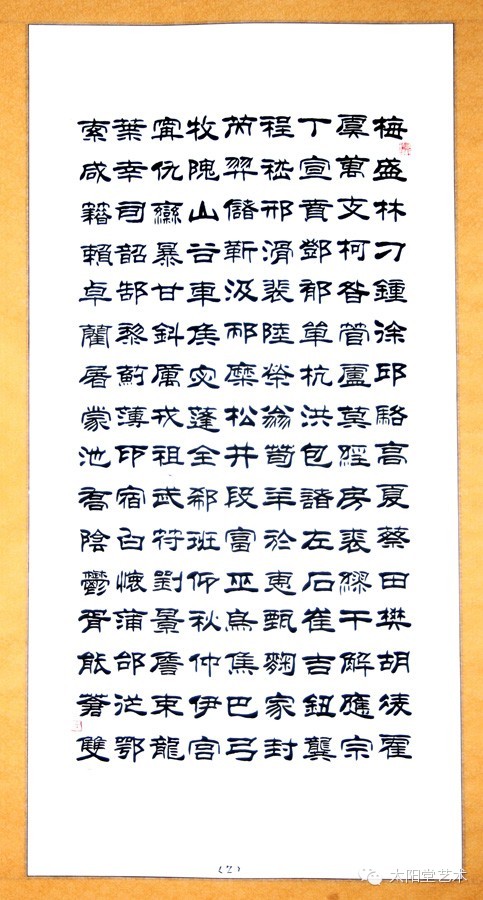 梅盛林刁鍾徐邱駱高夏蔡田樊胡凌霍
虞萬支柯昝管盧莫經房裘繆干解應宗
丁宣賁鄧郁單杭洪包諸左石崔吉鈕龔
程嵇邢滑裴陸榮翁荀羊於惠甄麴家封
芮羿儲靳汲邴糜松井段富巫烏焦巴弓
牧隗山谷車侯宓蓬全郗班仰秋仲伊宮
甯仇欒暴甘鈄厲戎祖武符劉景詹束龍
葉幸司韶郜黎薊薄印宿白懷蒲邰從鄂
索咸籍賴卓藺屠蒙池喬陰鬱胥能蒼雙
太阳堂艺术